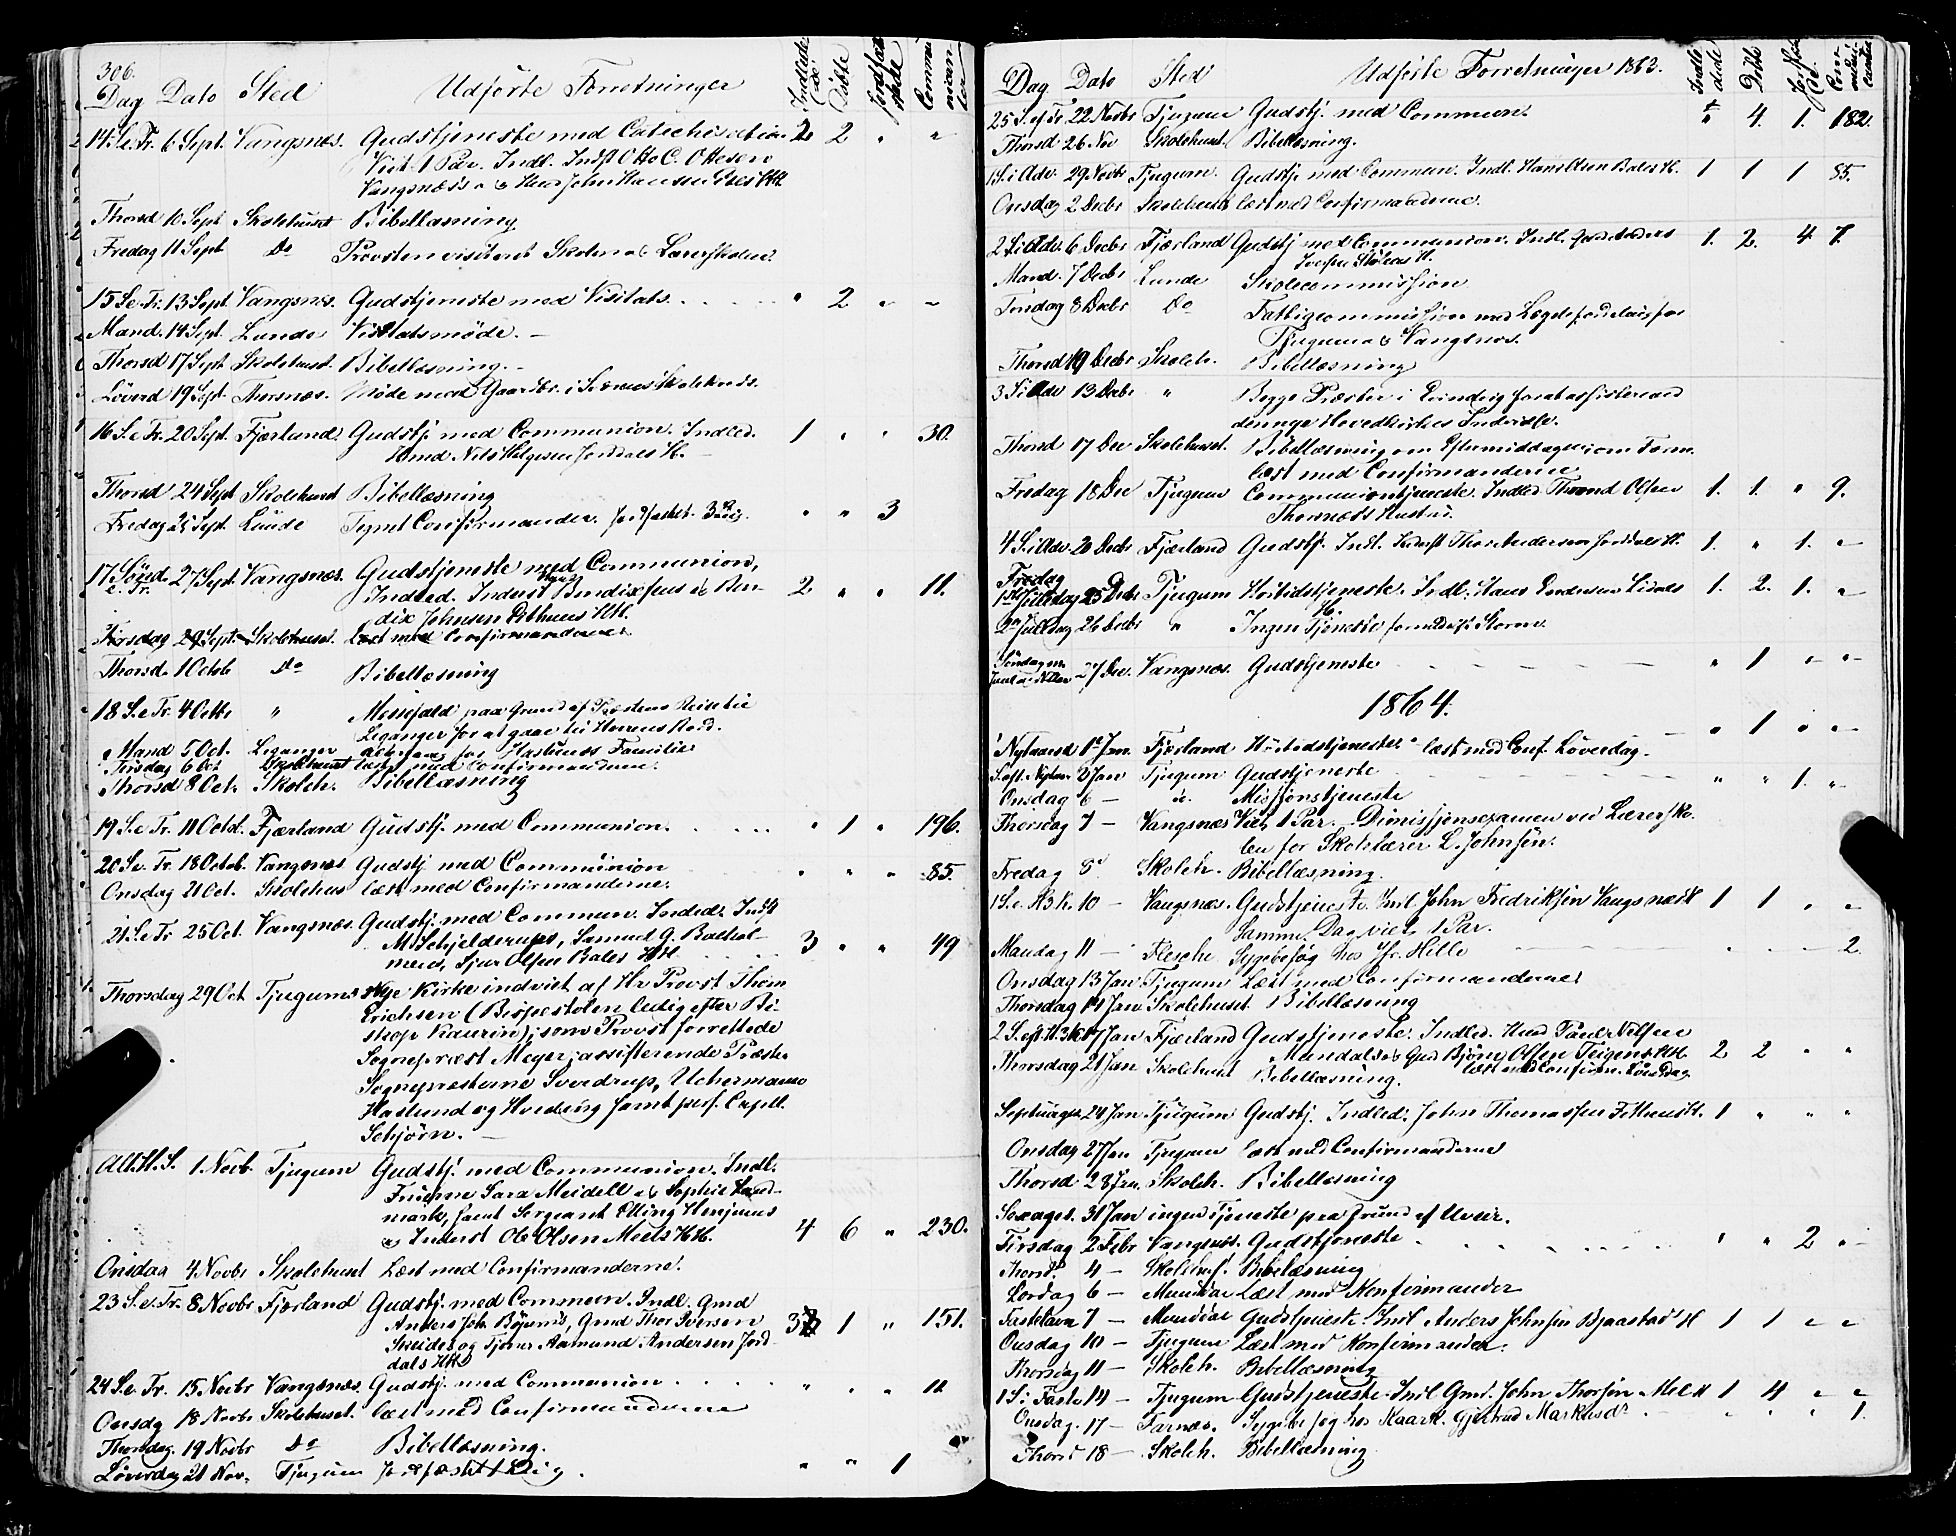 306.
Dag Dato Sted Udførte Forretninger Indledede Døbte Jordfæstede Communicanter
14 S.e.Tr. 6 Sept. Vangsnes. Gudstjeneste med Catechisation 2 2 " "
Viet 1 Par. Indl. Indst Otto C. Ottesen
Vangsnæs's & Huus John Hansen HH.
Thorsd 10 Sept Skolehuset Bibellæsning
Fredag 11 Sept Do Provsten visiteret Skolen & Lærerskolen.
15 S.e.Tr. 13 Sept Vangsnes. Gudstjeneste med Visitats. " 2 " "
Mand. 14 Sept. Lunde Visitatsmøde. —
Thorsd 17 Sept Skolehuset. Bibellæsning. —
Løverd 19 Sept. Thorsnæs. Møde med Gaardbr. i Skolekreds.
16 S.e.Tr. 20 Sept. Fjærland Gudstj. med Communion. Indled. 1 " " 30.
Hmd Nils Helgesen Jorddals H. —
Thorsd 24 Sept Skolehuset Bibellæsning
Fredag 25 Sept. Lunde Confirmander. Jordfæstet 3 Lig. " " 3
17 Sønd. e. Tr. 27 Sept. Vangsnes. Gudstjeneste med Communion, 2 " " 11.
Indled. Inderst Bendixsens & Ben-
dix Johnsen HH.
Tirsdag 29 Sept. Skolehuset. Læst med Confirmanderne.
Thorsd. 1 Octob Do Bibellæsning
18 S.e.Tr. 4 Octb " Messefald paa Grund af Præstens Reise til
Leganger for at gaae til Herrens Bord.
Mand 5 Oct. Leganger for Familie
Tirsdag 6 Oct Skolehuset læst med Confirmanderne.
Thorsd 8 Oct. Skoleh. Bibellæsning
19 S.e.Tr. 11 Octob. Fjærland Gudstj. med Communion. " 1 " 196.
20 S.e.Tr. 18 Octob. Vangsnes Gudstj med Communion " " " 85.
Onsdag 21 Oct. Skolehus læst med Confirmanderne.
21 S.e.Tr 25 Oct. Vangsnæs. Gudstj. med Commun. Indled. Indst 3 " " 49
M. Schjelderups, Samuel G. Balhol-
mens, Sjur Olsen Bales HH.
Thorsdag 29 Oct Tjugums Nye Kirke indviet af Hr Provst Thom
Erichsen (Bispestolen ledig efter Bi-
skop Kaurin); som Provst forrettede
Sognepræst Meyer; assisterende Præster
Sognepræsterne Sverdrup, Uchermann
Haslund og Hvoding samt pers. Capll.
Schjörn. —
All.H.S. 1 Novb. Tjugum Gudstj. med Communion. Indl.
Fruerne Sara Meidell & Sophie Land-
mark, samt Sergeant Elling Henjums
& Inderst Ole Olsen Meels HH. 4 6 " 230.
Onsdag 4 Novbr Skolehuset Læst med Confirmanderne.
23 S.e.Tr. 8 Novbr Fjærland Gudstj. med Commun. Indl. Gmd 3 1 " 151.
Anders Joh Bøjums, Gmd Thor Iversen
Skeides og Tjener Aamund Andersen Jord-
dals HH.
24 S.e.Tr. 15 Novbr Vangsnes. Gudstj. med Communion " " " 12
Onsdg 18 Novbr Skolehuset. læst med Confirmanderne
Thorsdag. 19 Novbr Do Bibellæsning.
Løverdag 21 Nov. Tjugum Jordfæstet 1 Lig. " " 1
Dag Dato Sted Udførte Forretninger 1863. Indledede Døbte Jordf. Communicanter
25 S. ef Tr. 22 Novbr Tjugum Gudstj. med Commun. " 4. 1. 182.
Thorsd 26 Nov Skolehuset. Bibellæsning.
1 S. i Adv. 29 Novbr Tjugum. Gudstj. med Commun. Indl. Hans Olsen Bales H. 1 1 1 85.
Onsdag 2 Decbr Skolehuset læst med Confirmanderne.
2 S. i Adv. 6 Decbr Fjærland Gudstj med Communion. Indl. 1. 2. 4 7.
Mand. 7 Decbr Lunde Skolecommission
Tirsdag 8 Decbr Do Fattigcommission med Lægdsfordeling for
Tjugum & Vangsnes.
Thorsd 10 Decbr Skoleh. Bibellæsning
3 S i Adv 13 Decbr " Begge Præster i Evindvig for at assistere ved
den nye Hovedkirkes Indvielse.
Thorsd 17 Dec Skolehuset. Bibellæsning om Eftermiddagen; om Form.
læst med Confirmanderne
Fredag 18 Dec Tjugum Communiontjeneste. Indled. Thrond Olsen 1. 1. " 9.
Thorsnæs's Hustru.
4 S. i Adv. 20 Decbr Fjærland Gudstj. Indl. Thor Andersen Jorddals H. 1. " 1. "
Fredag
1ste Juledag 25 Decbr Tjugum Høitidstjeneste. Indl. Hans Endresen H. 1. 2. 1. "
2den Juledag 26 Decbr " Ingen Tjeneste formedelst Storm.
Søndag m. Juul og Nytaar 27 Dec. Vangsnæs. Gudstjeneste " 1 " "
1864.
Nytaarsd 1ste Jan. Fjærland Høitidstjeneste. læst med Conf. Løverdag. " 1 " "
S. eft. Nytaar 3 Jan Tjugum Gudstjeneste " " 1. "
Onsdag 6 — do. Missionstjeneste
Thorsdag 7 — Vangsnæs Viet 1 Par. Dimissionsexamen ved Lærersko-
len for Skolelærer L. Johnsen.
Fredag 8 Skoleh. Bibellæsning.
1 S.e. H3K. 10 — Vangsnæs. Gudstjeneste. Indl. John Fredriksen Vangsnæs H 1 1 " "
Samme Dag viet 1 Par.
Mandag 11 — Flesche Sygebesøg hos Hille " " " 2.
Onsdag 13 Jan Tjugum Læst med Confirmanderne
Thorsdag 14 Jan Skolehuset Bibellæsning
2 S. eft H3K 17 Jan Fjærland Gudstjeneste. Indled. Huusmd Paul Nilsen
Mundals & Gmd Bjørn Olsen Teigens HH. 2 2 " "
Thorsdag 21 Jan Skolehuset Bibellæsning. læst med Confirm. Lørdag.
Septuages. 24 Jan Tjugum Gudstj. Indled. John Thomassen H. 1 " " "
Onsdag 27 Jan Tjugum læst med Confirmanderne
Thorsd 28 Jan. Skoleh. Bibellæsning
Sexages. 31 Jan ingen Tjeneste paa Grund af Uveir.
Tirsdag 2 Febr Vangsnes. Gudstjeneste " " 2 "
Thorsd. 4 — Skolehus. Bibelæsning
Lørdag 6 — Mundal Læst med Konfirmander
Fastelavn 7 — Mundal Gudstjeneste. Indl Anders Johnsen Bjaastad H 1 1 " "
Onsdag 10 — Tjugum Læst med Konfirmander.
Thorsdag 11 — Skoleh. Bibellæsning
1 S. i Faste 14 — Tjugum Gudstjeneste. Indl. Gmd. John Thorsen Mel H 1 4 " "
Onsdag. 17 — Farnæs. Sygebesøg hos Kaark. Gjertrud Markusdr. " " " 1.
Thorsd 18 — Skoleh. Bibellæsning.